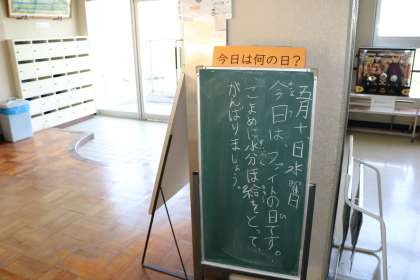 今日は何の日?
五月十日水曜日
今日は、ファイトの日です。
こまめに水分ほ給をとって、
がんばりましょう。